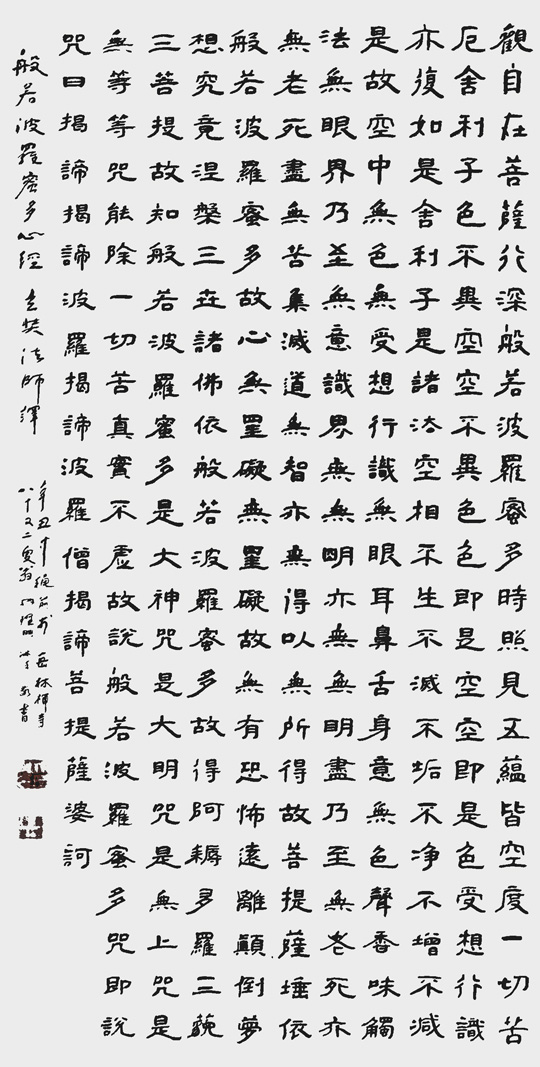 觀自在菩薩行深般若波羅蜜多時照見五蘊皆空度一切苦
厄舍利子色不異空空不異色色即是空空即是色受想行識
亦復如是舍利子是諸法空相不生不滅不垢不淨不增不減
是故空中無色無受想行識無眼耳鼻舌身意無色聲香味觸
法無眼界乃至無意識界無無明亦無無明盡乃至無老死亦
無老死盡無苦集滅道無智亦無得以無所得故菩提薩埵依
般若波羅蜜多故心無罣礙無罣礙故無有恐怖遠離顛倒夢
想究竟涅槃三世諸佛依般若波羅蜜多故得阿耨多羅三藐
三菩提故知般若波羅蜜多是大神咒是大明咒是無上咒是
無等等咒能除一切苦真實不虛故說般若波羅蜜多咒即說
咒曰揭諦揭諦波羅揭諦波羅僧揭諦菩提薩婆訶
般若波羅蜜多心經 玄奘法師譯
辛丑年
八十又二叟 書